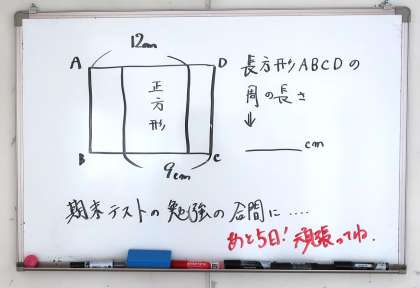 12cm
A
D
正方形
B
C
9cm
長方形ABCDの
周の長さ
↓
cm
期末テストの勉強の合間に....
あと5日!頑張ってね.